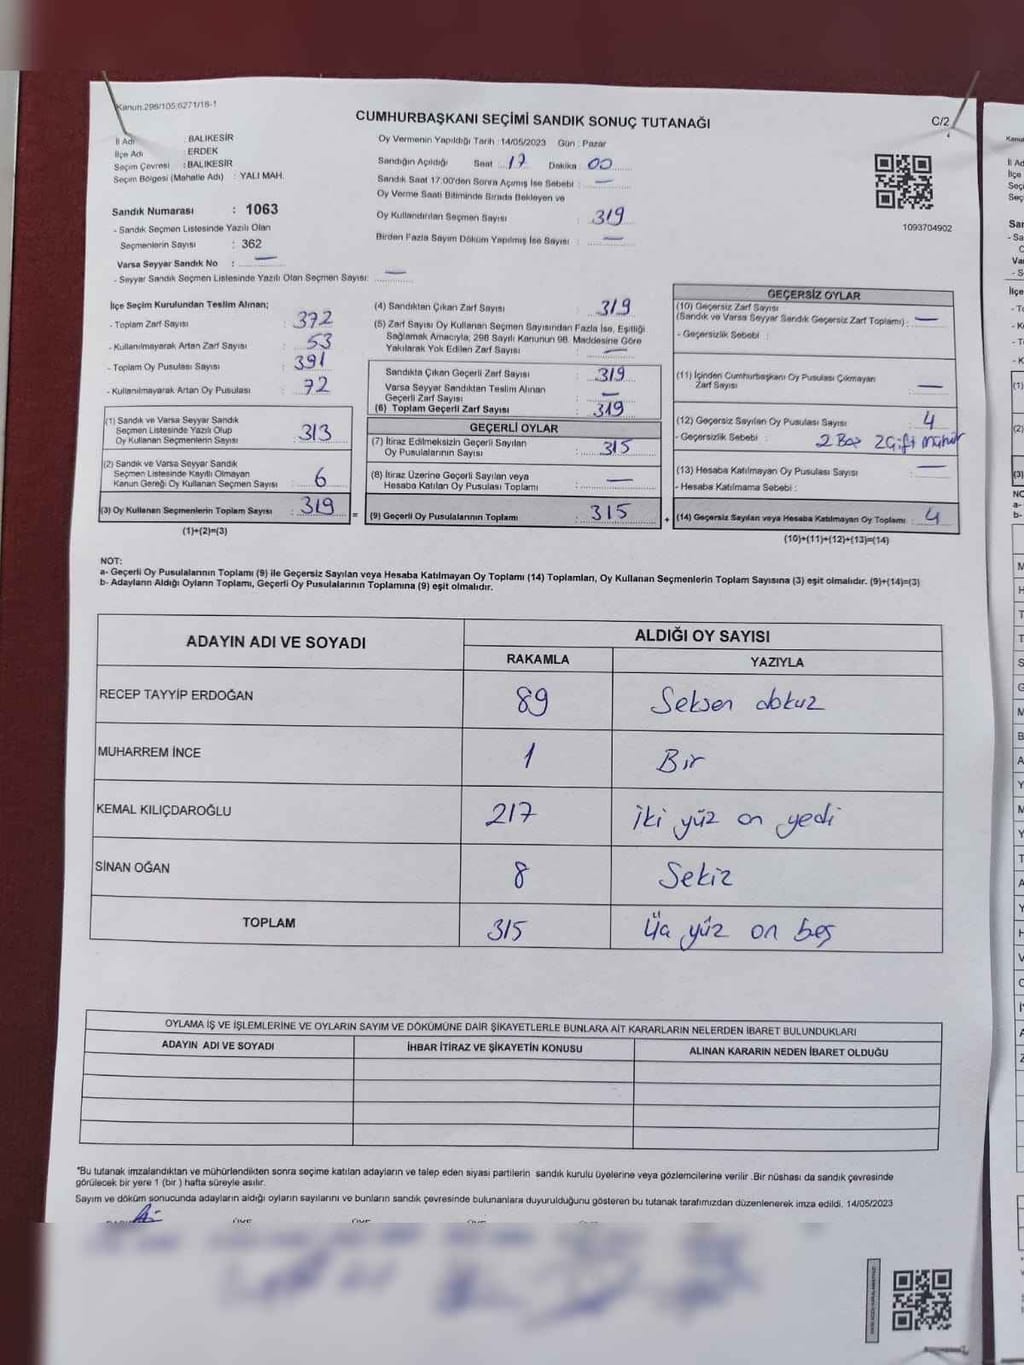 Kanun:298/105;6271/18-1
CUMHURBAŞKANI SEÇİMİ SANDIK SONUÇ TUTANAĞI
C/2
İl Adı : BALIKESİR
İlçe Adı : ERDEK
Seçim Çevresi : BALIKESİR
Seçim Bölgesi (Mahalle Adı) : YALI MAH.
Sandık Numarası : 1063
- Sandık Seçmen Listesinde Yazılı Olan
Seçmenlerin Sayısı : 362
Varsa Seyyar Sandık No : —
- Seyyar Sandık Seçmen Listesinde Yazılı Olan Seçmen Sayısı: —
Oy Vermenin Yapıldığı Tarih : 14/05/2023 Gün : Pazar
Sandığın Açıldığı Saat : 17 Dakika : 00
Sandık Saat 17.00'den Sonra Açımış İse Sebebi : —
Oy Verme Saati Bitiminde Sırada Bekleyen ve
Oy Kullandırılan Seçmen Sayısı : 319
Birden Fazla Sayım Döküm Yapılmış İse Sayısı : —
1093704902
İlçe Seçim Kurulundan Teslim Alınan;
- Toplam Zarf Sayısı : 372
- Kullanılmayarak Artan Zarf Sayısı : 53
- Toplam Oy Pusulası Sayısı : 391
- Kullanılmayarak Artan Oy Pusulası : 72
(1) Sandık ve Varsa Seyyar Sandık
Seçmen Listesinde Yazılı Olup
Oy Kullanan Seçmenlerin Sayısı : 313
(2) Sandık ve Varsa Seyyar Sandık
Seçmen Listesinde Kayıtlı Olmayan
Kanun Gereği Oy Kullanan Seçmen Sayısı : 6
(3) Oy Kullanan Seçmenlerin Toplam Sayısı : 319
(1)+(2)=(3)
(4) Sandıktan Çıkan Zarf Sayısı : 319
(5) Zarf Sayısı Oy Kullanan Seçmen Sayısından Fazla İse, Eşitliği
Sağlamak Amacıyla; 298 Sayılı Kanunun 98. Maddesine Göre
Yakılarak Yok Edilen Zarf Sayısı : —
Sandıkta Çıkan Geçerli Zarf Sayısı : 319
Varsa Seyyar Sandıktan Teslim Alınan
Geçerli Zarf Sayısı : —
(6) Toplam Geçerli Zarf Sayısı : 319
GEÇERLİ OYLAR
(7) İtiraz Edilmeksizin Geçerli Sayılan
Oy Pusulalarının Sayısı : 315
(8) İtiraz Üzerine Geçerli Sayılan veya
Hesaba Katılan Oy Pusulası Toplamı : —
= (9) Geçerli Oy Pusulalarının Toplamı : 315
GEÇERSİZ OYLAR
(10) Geçersiz Zarf Sayısı
(Sandık ve Varsa Seyyar Sandık Geçersiz Zarf Toplamı) : —
- Geçersizlik Sebebi :
(11) İçinden Cumhurbaşkanı Oy Pusulası Çıkmayan
Zarf Sayısı : —
(12) Geçersiz Sayılan Oy Pusulası Sayısı : 4
- Geçersizlik Sebebi : 2 Boş 2 Çift mühür
(13) Hesaba Katılmayan Oy Pusulası Sayısı : —
- Hesaba Katılmama Sebebi :
+ (14) Geçersiz Sayılan veya Hesaba Katılmayan Oy Toplamı : 4
(10)+(11)+(12)+(13)=(14)
NOT:
a- Geçerli Oy Pusulalarının Toplamı (9) ile Geçersiz Sayılan veya Hesaba Katılmayan Oy Toplamı (14) Toplamları, Oy Kullanan Seçmenlerin Toplam Sayısına (3) eşit olmalıdır. (9)+(14)=(3)
b- Adayların Aldığı Oyların Toplamı, Geçerli Oy Pusulalarının Toplamına (9) eşit olmalıdır.
ADAYIN ADI VE SOYADI
ALDIĞI OY SAYISI
RAKAMLA YAZIYLA
RECEP TAYYİP ERDOĞAN 89 Seksen dokuz
MUHARREM İNCE 1 Bir
KEMAL KILIÇDAROĞLU 217 iki yüz on yedi
SİNAN OĞAN 8 Sekiz
TOPLAM 315 Üç yüz on beş
OYLAMA İŞ VE İŞLEMLERİNE VE OYLARIN SAYIM VE DÖKÜMÜNE DAİR ŞİKAYETLERLE BUNLARA AİT KARARLARIN NELERDEN İBARET BULUNDUKLARI
ADAYIN ADI VE SOYADI İHBAR İTİRAZ VE ŞİKAYETİN KONUSU ALINAN KARARIN NEDEN İBARET OLDUĞU
*Bu tutanak imzalandıktan ve mühürlendikten sonra seçime katılan adayların ve talep eden siyasi partilerin sandık kurulu üyelerine veya gözlemcilerine verilir .Bir nüshası da sandık çevresinde
görülecek bir yere 1 (bir ) hafta süreyle asılır.
Sayım ve döküm sonucunda adayların aldığı oyların sayılarını ve bunların sandık çevresinde bulunanlara duyurulduğunu gösteren bu tutanak tarafımızdan düzenlenerek imza edildi. 14/05/2023